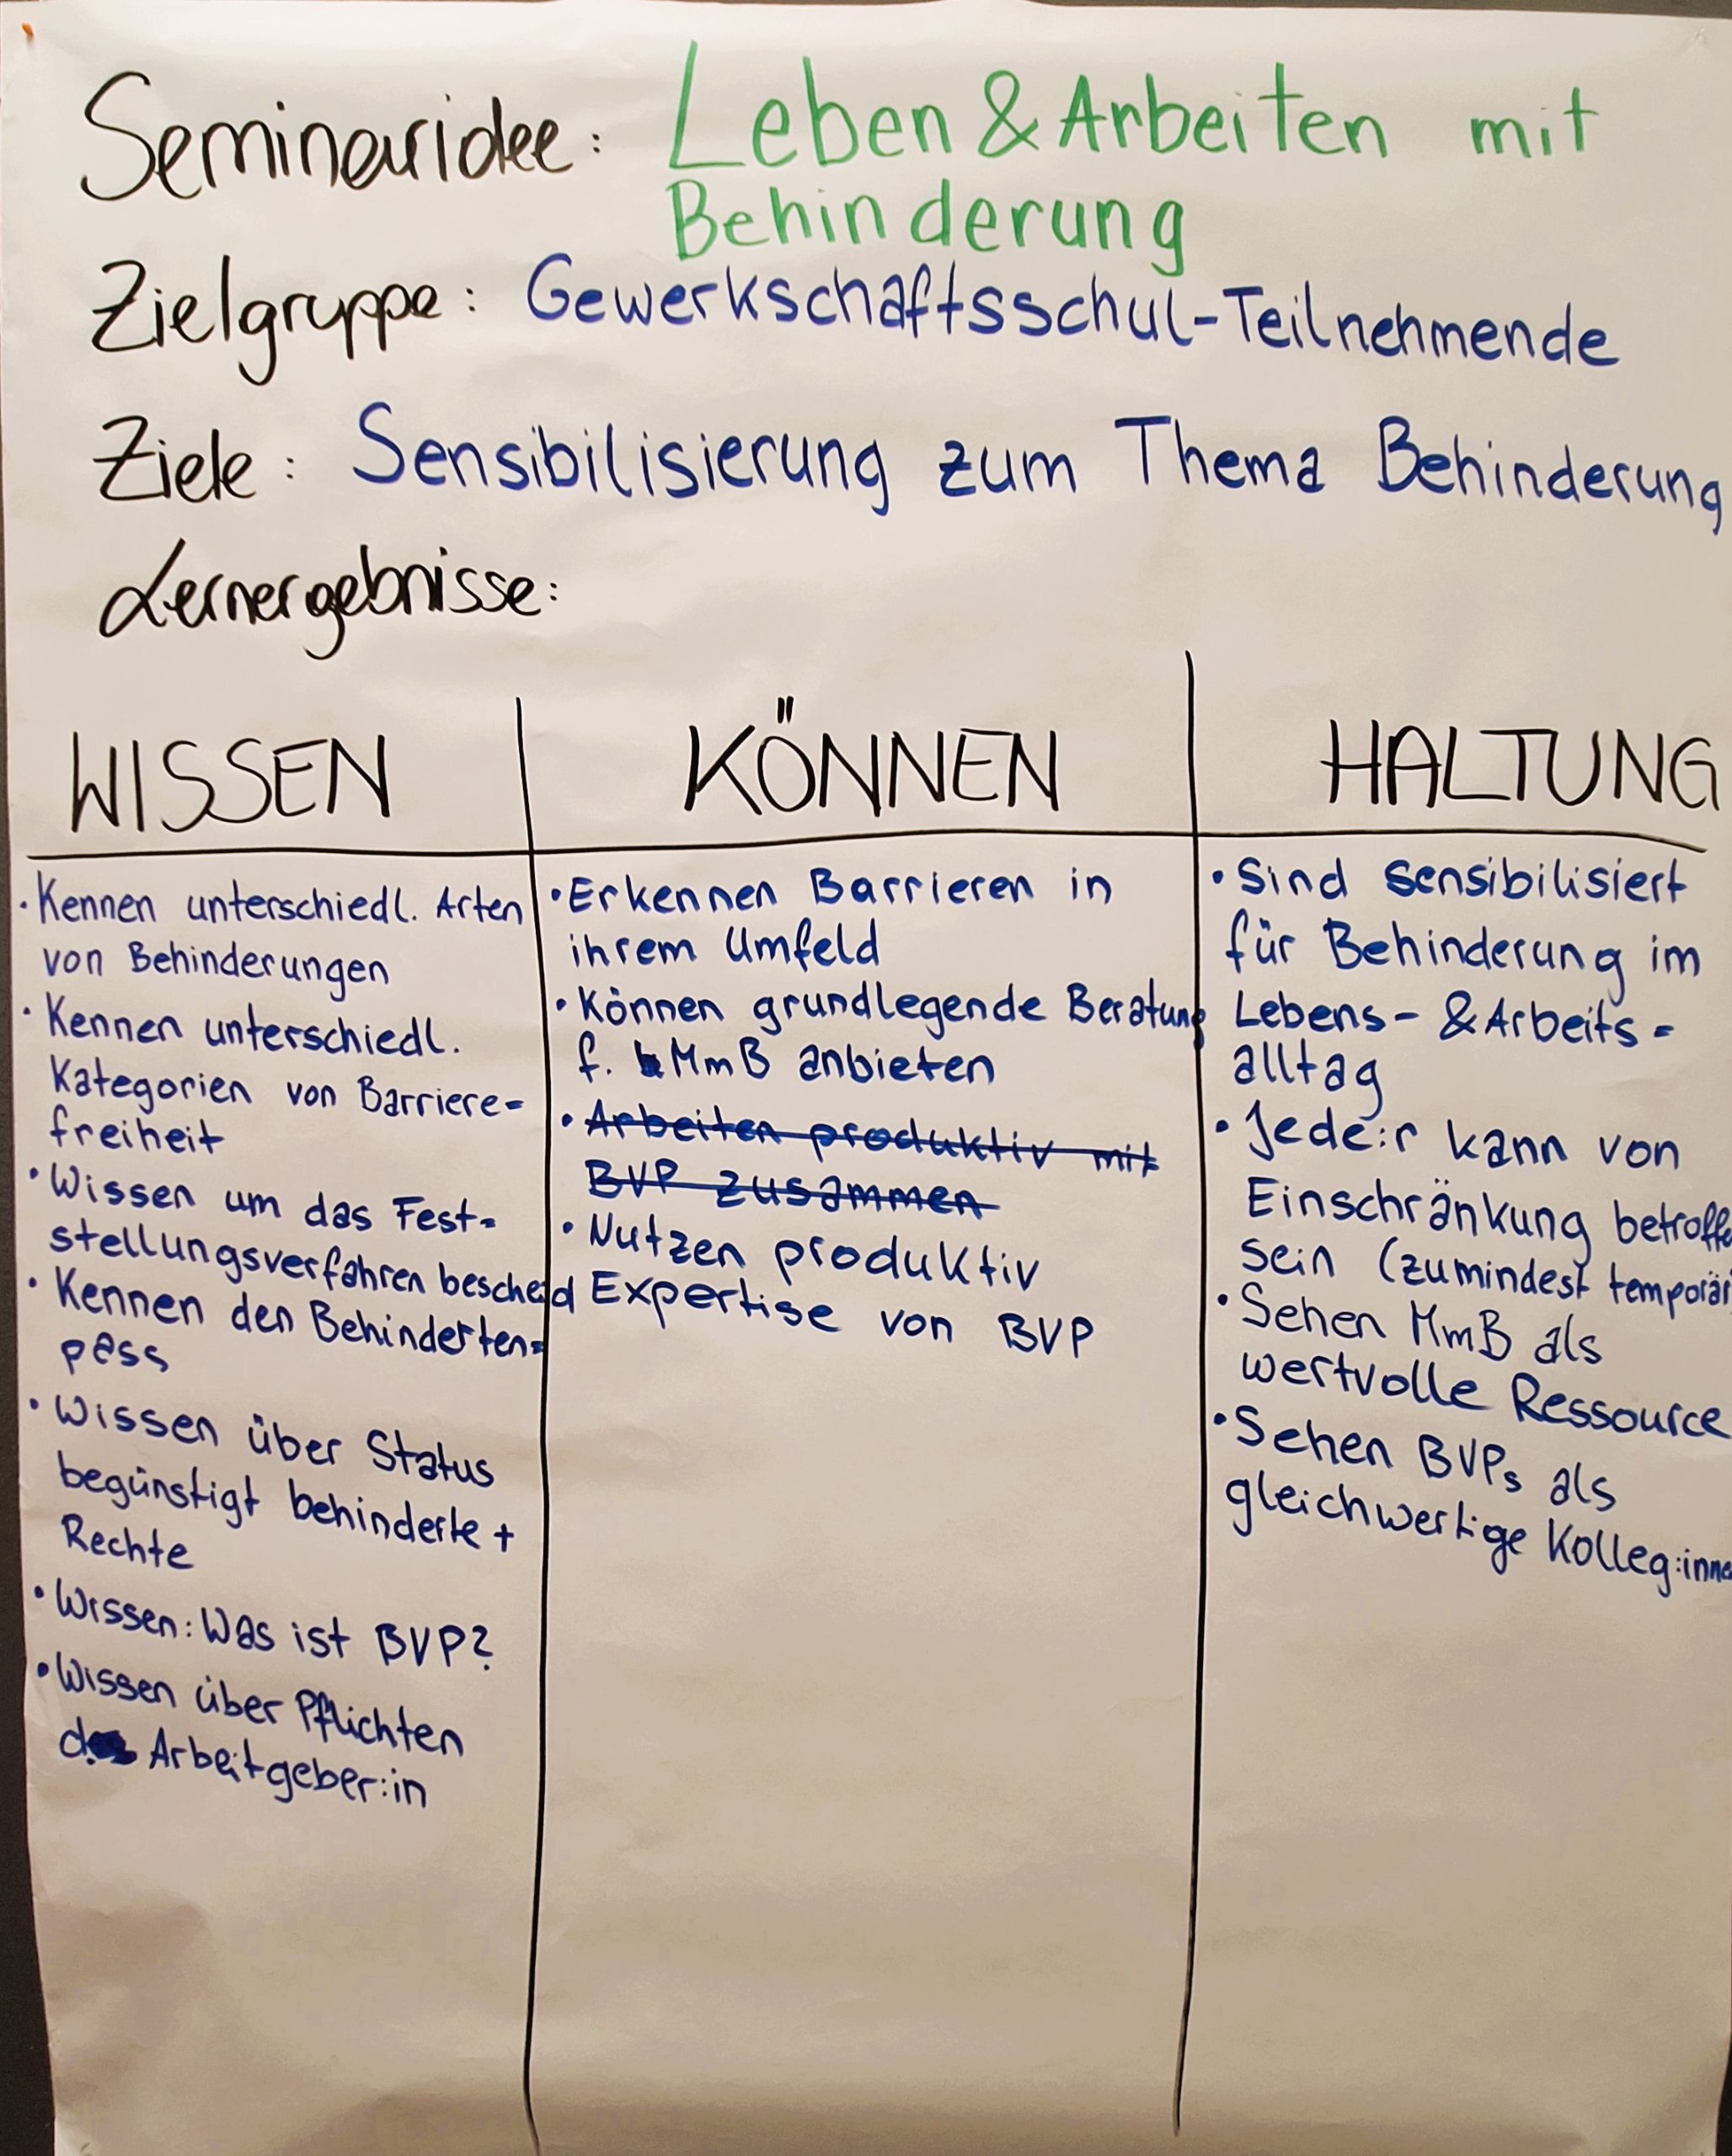 Seminaridee: Leben & Arbeiten mit
Behinderung
Zielgruppe: Gewerkschaftsschul-Teilnehmende
Ziele: Sensibilisierung zum Thema Behinderung
Lernergebnisse:
WISSEN
· Kennen unterschiedl. Arten
von Behinderungen
· Kennen unterschiedl.
Kategorien von Barriere=
freiheit
· Wissen um das Fest=
stellungsverfahren bescheid
· Kennen den Behinderten=
pass
· Wissen über Status
begünstigt behinderte +
Rechte
· Wissen: Was ist BVP?
· Wissen über Pflichten
Arbeitgeber:in
KÖNNEN
· Erkennen Barrieren in
ihrem Umfeld
· Können grundlegende Beratung
f. MmB anbieten
· Arbeiten produktiv mit
BVP zusammen
· Nutzen produktiv
Expertise von BVP
HALTUNG
· Sind sensibilisiert
für Behinderung im
Lebens- & Arbeits=
alltag
· Jede:r kann von
Einschränkung betroffe
sein (zumindest temporär
· Sehen MmB als
wertvolle Ressource
· Sehen BVPs als
gleichwertige Kolleg:inne